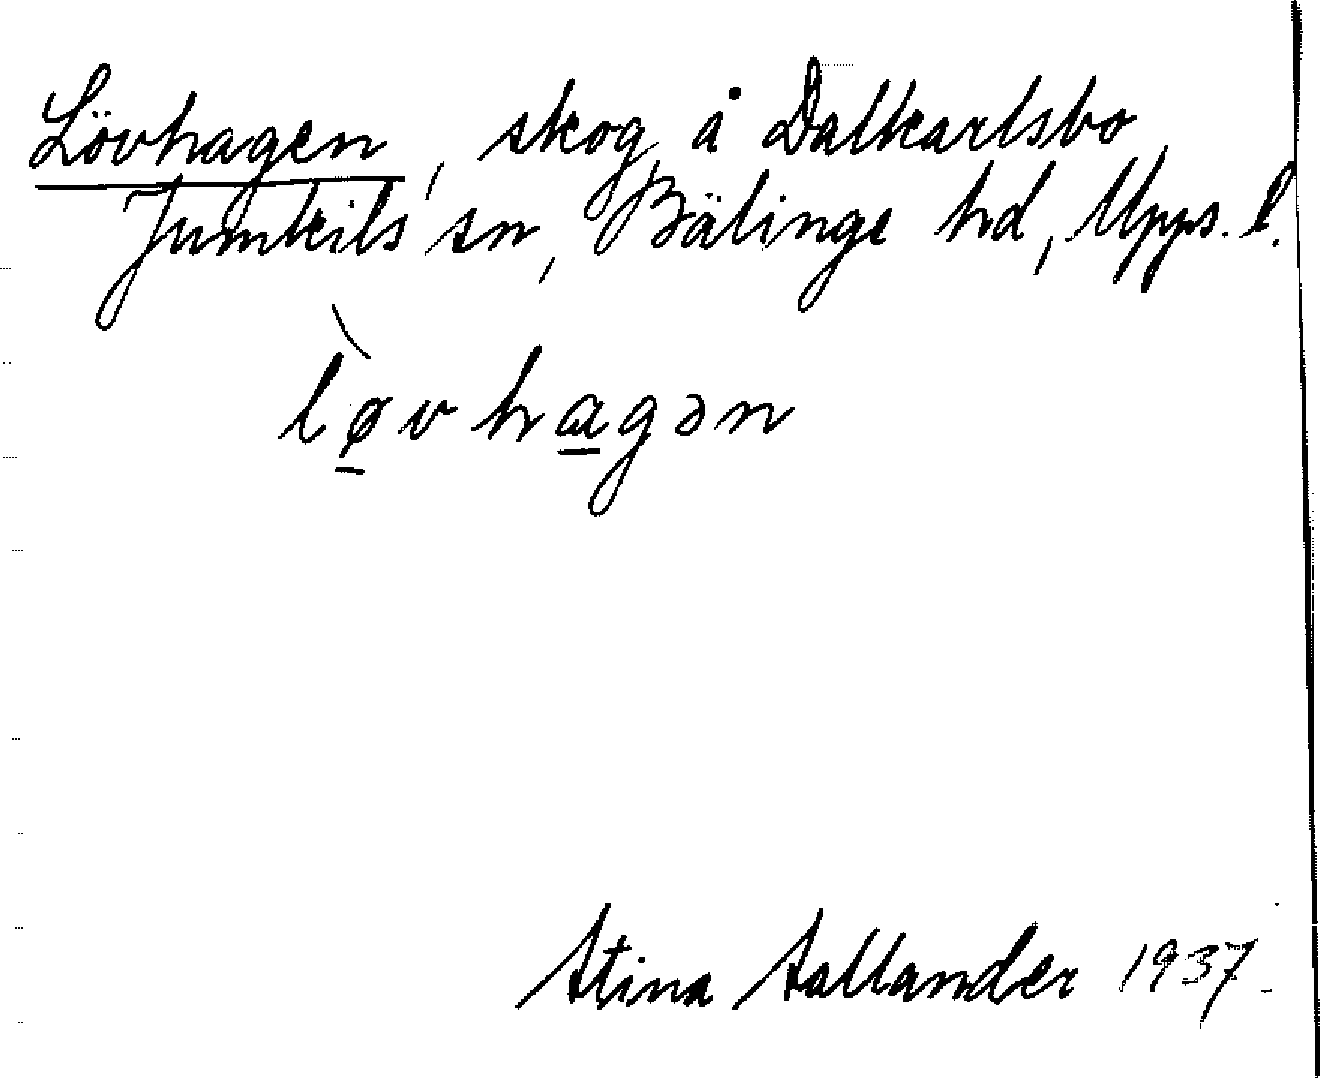 Lövhagen, skog å Dalkarlsbo,
Jumkils sn, Bälinge hd, Upps. l.
lø̲̀vha̲gən
Stina Sallander 1937.